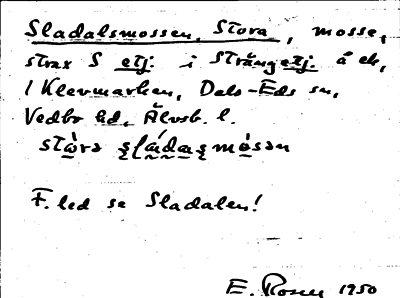 Sladalsmossen, Stora, mosse,
strax S etj. i Strängetj. å ek,
i Klevmarken, Dals-Eds sn,
Vedbo hd, Älvsb. l.
F. led se Sladalen!
E. Rosen 1950